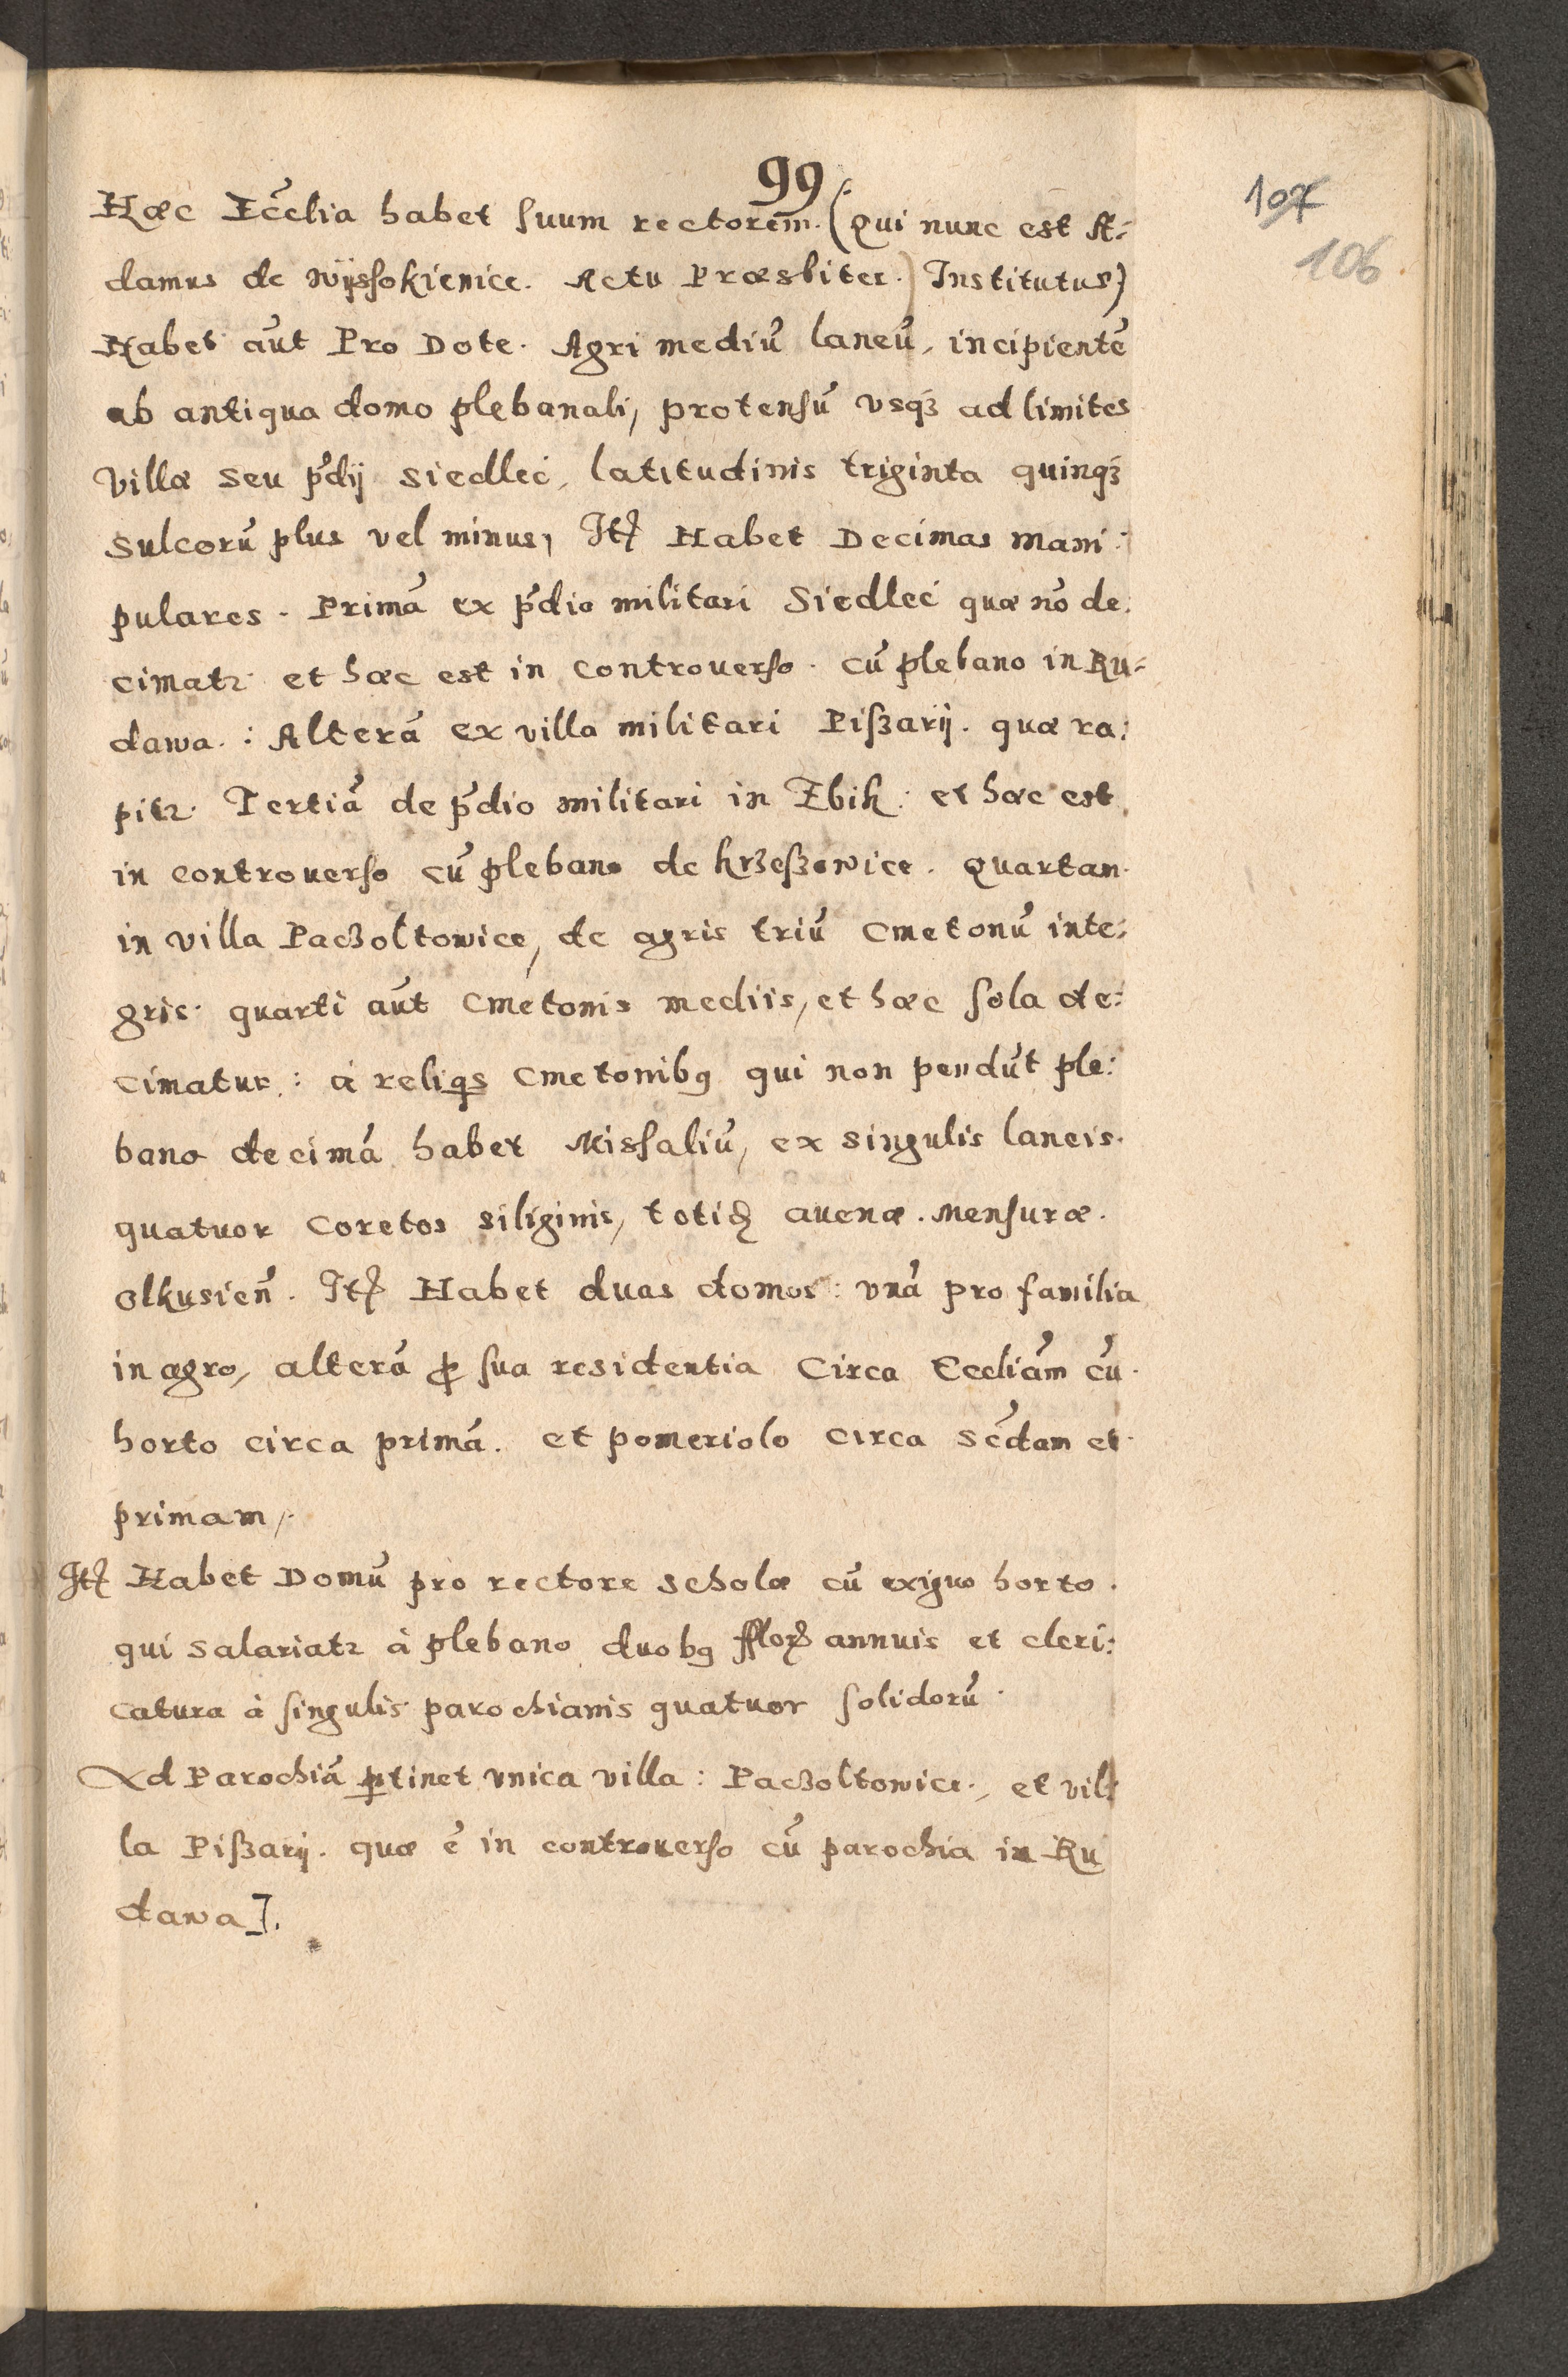 99
107
106
Hæc Ecc̃lia habet suum rectorem. (Qui nunc est A-
damus de Wyssokienice. Actu Præsbiter.) Institutus)
Habet aũt Pro Dote. Agri mediũ laneũ, incipientẽ
ab antiqua domo plebanali, protensũ vsqꝫ ad limites
Villæ seu p̃dij Siedlec, latitudinis triginta quinqꝫ
Sulcorũ plus vel minus, Itꝫ Habet Decimas mani:
pulares. Primã ex p̃dio militari Siedlec quæ nõ de:
cimatꝛ et hæc est in controuerso. cũ plebano in Ru-
dawa.: Alterã ex villa militari Pißarij. quæ ra:
pitꝛ. Tertiã de p̃dio militari in Zbik: et hæc est
in controuerso cũ plebano de krzeßowice. Quartan.
in villa Paczoltowice, de agris triũ Cmetonũ inte:
gris. quarti aũt Cmetonis mediis, et hæc sola de:
cimatur: à reliqs Cmetonibꝰ qui non pendũt ple:
bano decimã habet Missaliũ, ex singulis laneis.
quatuor Coretos siliginis, totidꝫ auenæ. Mensuræ.
olkusieñ. Itꝫ Habet duas domos: vnã pro familia
in agro, alterã ꝓ sua residentia Circa Eccliãm cũ.
horto circa primã. et pomeriolo circa Sc̃dam et
primam,.
Itꝫ Habet Domũ pro rectore scholæ cũ exiguo horto.
qui Salariatꝛ à plebano duobꝰ fflorꝫ annuis et cleri:
catura à singulis parochianis quatuor solidorũ.
Ad Parochiã ꝑtinet vnica villa: Paczoltowice., et vil:
la Pißarij. quæ ẽ in controuerso cũ parochia in Ru
dawa].